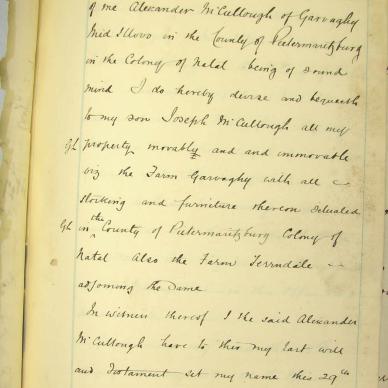 of me Alexander McCullough of Garvaghy
Mid Illovo in the County of Pietermaritzburg
in the Colony of Natal being of sound
mind I do hereby devise and bequeath
to my son Joseph McCullough all my
property movably and and immovable
viz the Farm Garvaghy with all
stocking and furniture thereon situated
in the County of Pietermaritzburg Colony of
Natal Also the Farm Ferndale --
adjoining the Same
In witness thereof I the said Alexander
McCullough have to this my last will
and Testament set my name this 29th